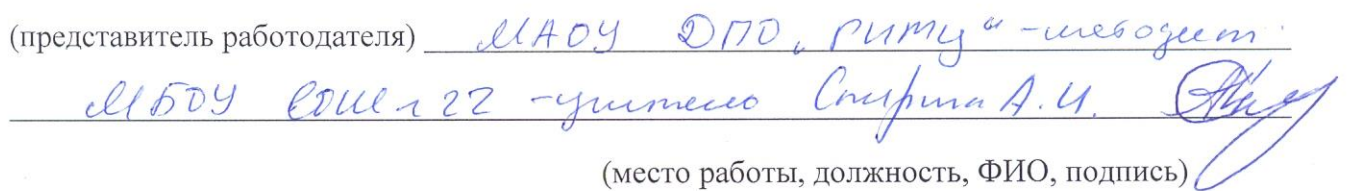 (представитель работодателя) МАОУ ДПО „РИМЦ“ -методист
МБОУ СОШ №22 -учитель Спирина А.И.
(место работы, должность, ФИО, подпись)